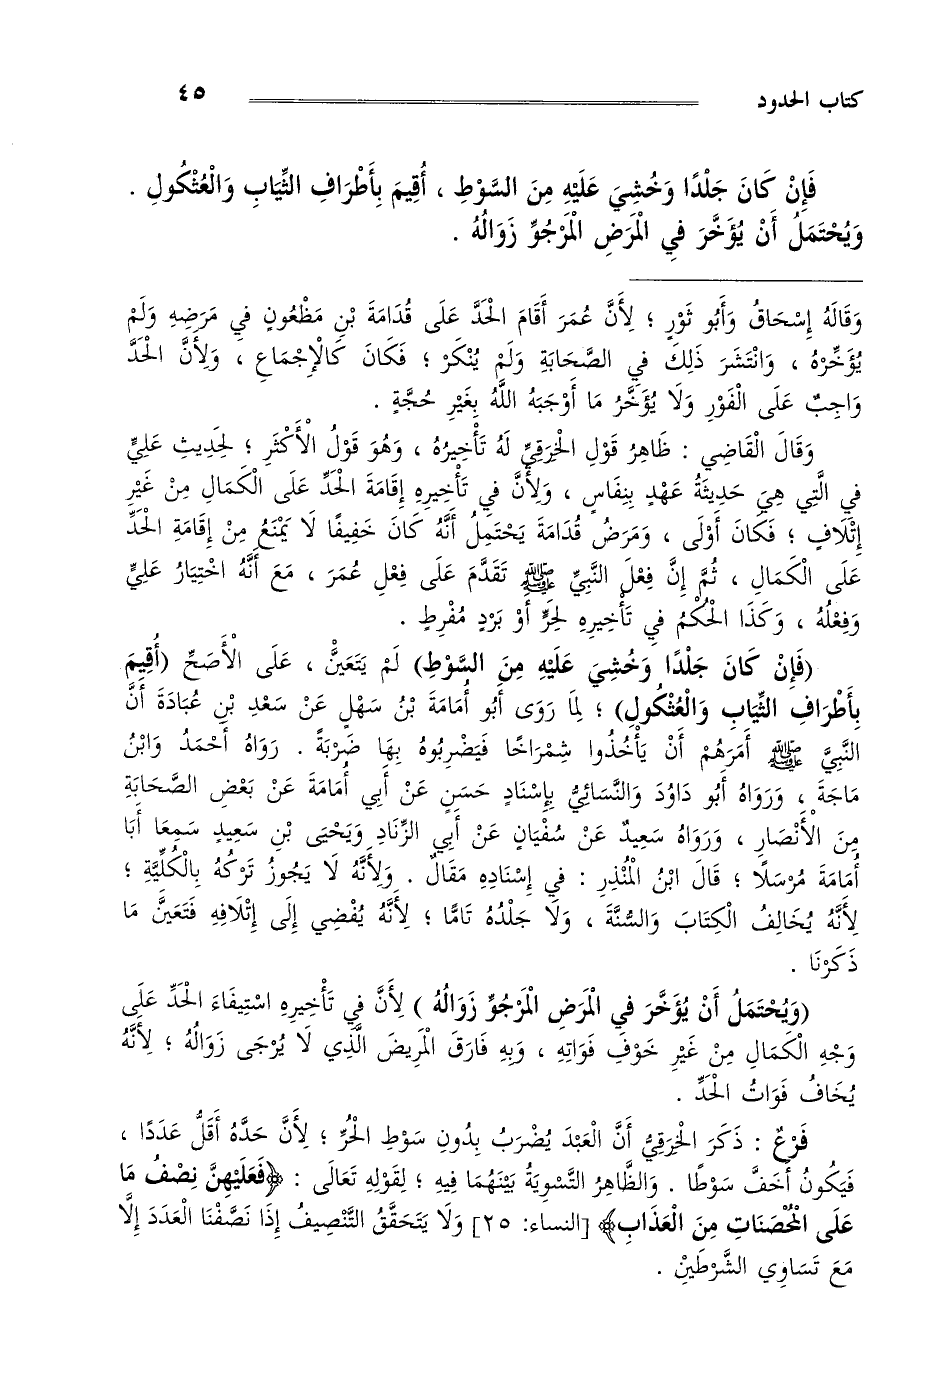 كتاب الحدود
٤٥
فَإِنْ كَانَ جَلْدًا وَخُشِيَ عَلَيْهِ مِنَ السَّوْطِ ، أُقِيمَ بِأَطْرَافِ الثِّيَابِ وَالْعُثْكُولِ .
وَيُحْتَمَلُ أَنْ يُؤَخَّرَ فِي الْمَرَضِ الْمَرْجُوِّ زَوَالُهُ .
وَقَالَهُ إِسْحَاقُ وَأَبُو ثَوْرٍ ؛ لِأَنَّ عُمَرَ أَقَامَ الْحَدَّ عَلَى قُدَامَةَ بْنِ مَظْعُونٍ فِي مَرَضِهِ وَلَمْ
يُؤَخِّرْهُ ، وَانْتَشَرَ ذَلِكَ فِي الصَّحَابَةِ وَلَمْ يُنْكَرْ ؛ فَكَانَ كَالْإِجْمَاعِ ، وَلِأَنَّ الْحَدَّ
وَاجِبٌ عَلَى الْفَوْرِ وَلَا يُؤَخَّرُ مَا أَوْجَبَهُ اللَّهُ بِغَيْرِ حُجَّةٍ .
وَقَالَ الْقَاضِي : ظَاهِرُ قَوْلِ الْخِرَقِيِّ لَهُ تَأْخِيرُهُ ، وَهُوَ قَوْلُ الْأَكْثَرِ ؛ لِحَدِيثِ عَلِيٍّ
فِي الَّتِي هِيَ حَدِيثَةُ عَهْدٍ بِنِفَاسٍ ، وَلِأَنَّ فِي تَأْخِيرِهِ إِقَامَةَ الْحَدِّ عَلَى الْكَمَالِ مِنْ غَيْرِ
إِتْلَافٍ ؛ فَكَانَ أَوْلَى ، وَمَرَضُ قُدَامَةَ يَحْتَمِلُ أَنَّهُ كَانَ خَفِيفًا لَا يَمْنَعُ مِنْ إِقَامَةِ الْحَدِّ
عَلَى الْكَمَالِ ، ثُمَّ إِنَّ فِعْلَ النَّبِيِّ ﷺ تَقَدَّمَ عَلَى فِعْلِ عُمَرَ ، مَعَ أَنَّهُ اخْتِيَارُ عَلِيٍّ
وَفِعْلُهُ ، وَكَذَا الْحُكْمُ فِي تَأْخِيرِهِ لِحَرٍّ أَوْ بَرْدٍ مُفْرِطٍ .
(فَإِنْ كَانَ جَلْدًا وَخُشِيَ عَلَيْهِ مِنَ السَّوْطِ) لَمْ يَتَعَيَّنْ ، عَلَى الْأَصَحِّ (أُقِيمَ
بِأَطْرَافِ الثِّيَابِ وَالْعُثْكُولِ) ؛ لِمَا رَوَى أَبُو أُمَامَةَ بْنُ سَهْلٍ عَنْ سَعْدِ بْنِ عُبَادَةَ أَنَّ
النَّبِيَّ ﷺ أَمَرَهُمْ أَنْ يَأْخُذُوا شِمْرَاخًا فَيَضْرِبُوهُ بِهَا ضَرْبَةً . رَوَاهُ أَحْمَدُ وَابْنُ
مَاجَةَ ، وَرَوَاهُ أَبُو دَاوُدَ وَالنَّسَائِيُّ بِإِسْنَادٍ حَسَنٍ عَنْ أَبِي أُمَامَةَ عَنْ بَعْضِ الصَّحَابَةِ
مِنَ الْأَنْصَارِ ، وَرَوَاهُ سَعِيدٌ عَنْ سُفْيَانَ عَنْ أَبِي الزِّنَادِ وَيَحْيَى بْنِ سَعِيدٍ سَمِعَا أَبَا
أُمَامَةَ مُرْسَلًا ؛ قَالَ ابْنُ الْمُنْذِرِ : فِي إِسْنَادِهِ مَقَالٌ . وَلِأَنَّهُ لَا يَجُوزُ تَرْكُهُ بِالْكُلِّيَّةِ ؛
لِأَنَّهُ يُخَالِفُ الْكِتَابَ وَالسُّنَّةَ ، وَلَا جَلْدُهُ تَامًّا ؛ لِأَنَّهُ يُفْضِي إِلَى إِتْلَافِهِ فَتَعَيَّنَ مَا
ذَكَرْنَا .
(وَيُحْتَمَلُ أَنْ يُؤَخَّرَ فِي الْمَرَضِ الْمَرْجُوِّ زَوَالُهُ ) لِأَنَّ فِي تَأْخِيرِهِ اسْتِيفَاءَ الْحَدِّ عَلَى
وَجْهِ الْكَمَالِ مِنْ غَيْرِ خَوْفِ فَوَاتِهِ ، وَبِهِ فَارَقَ الْمَرِيضَ الَّذِي لَا يُرْجَى زَوَالُهُ ؛ لِأَنَّهُ
يُخَافُ فَوَاتُ الْحَدِّ .
فَرْعٌ : ذَكَرَ الْخِرَقِيُّ أَنَّ الْعَبْدَ يُضْرَبُ بِدُونِ سَوْطِ الْحُرِّ ؛ لِأَنَّ حَدَّهُ أَقَلُّ عَدَدًا ،
فَيَكُونُ أَخَفَّ سَوْطًا . وَالظَّاهِرُ التَّسْوِيَةُ بَيْنَهُمَا فِيهِ ؛ لِقَوْلِهِ تَعَالَى : ﴿فَعَلَيْهِنَّ نِصْفُ مَا
عَلَى الْمُحْصَنَاتِ مِنَ الْعَذَابِ﴾ [النساء: ٢٥] وَلَا يَتَحَقَّقُ التَّنْصِيفُ إِذَا نَصَّفْنَا الْعَدَدَ إِلَّا
مَعَ تَسَاوِي الشَّرْطَيْنِ .